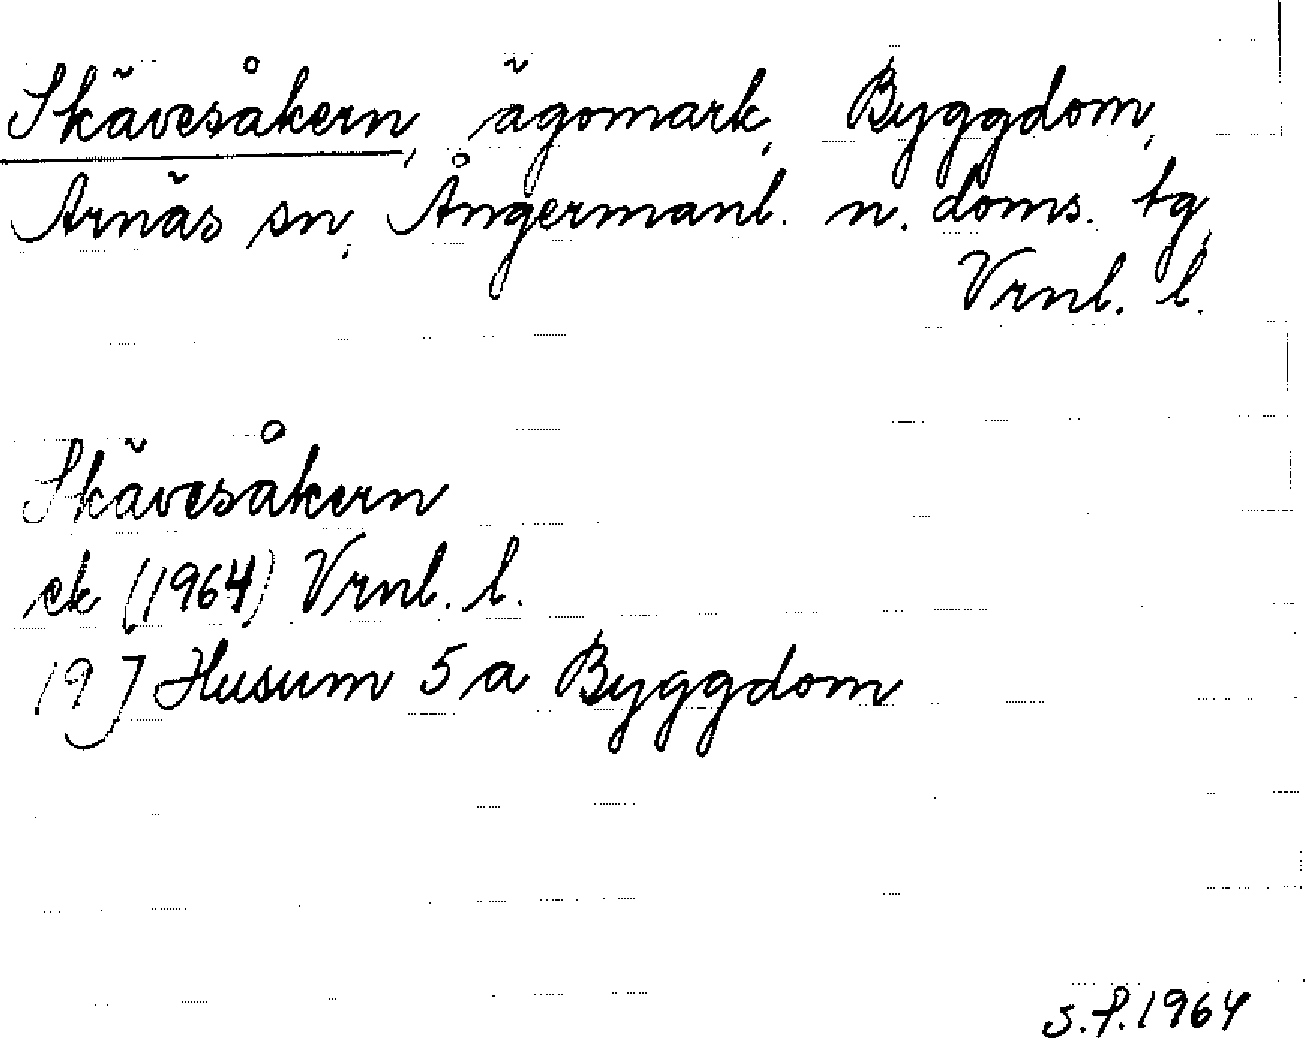 Skävesåkern, ägomark, Byggdom,
Arnäs sn, Ångermanl. n. doms. tg,
Vrnl. l.
Skävesåkern
ek (1964) Vrnl. l.
19 J Husum 5 a Byggdom
s.f. 1964